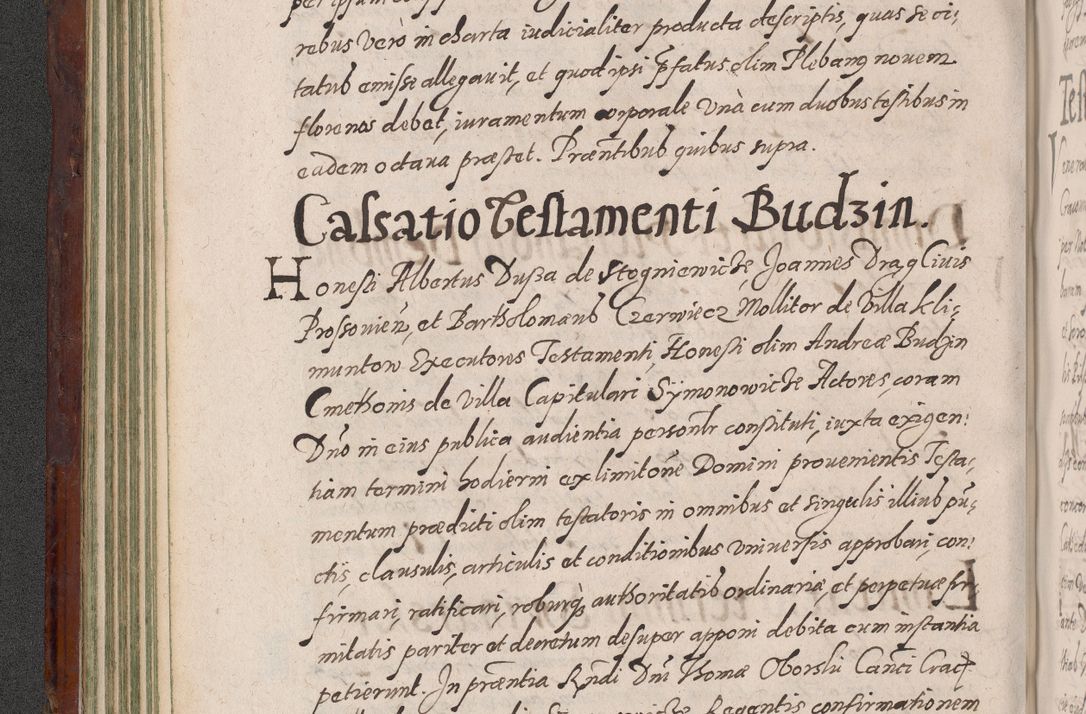 rebus vero in charta iudicialiter producta descriptis, quas se ci-
tatus emisse allegavit, et quod ipsi pfatus olim Plebanus novem
florenos debet, iuramentum corporale unà cum duobus testibus in
eadem octava præstet. Præntibus quibus supra.
Cassatio Testamenti Budzin.
Honesti Albertus Dusza de Stogniewicze, Joannes Drąg Civis
Prossovien, et Bartholomæus Czerwiecz Mollitor de Villa Kli-
muntow Executores Testamenti Honesti olim Andreæ Budzin
Cmethonis de Villa Capitulari Symonowicze Actores, coram
Dno in eius publica audientia personlr constituti, iuxta exigen:
tiam termini hodierni ex limitone Domini provenientis Testa-
mentum prædicti olim testatoris in omnibus et singulis illius pun-
ctis, clausulis, articulis et conditionibus universis approbari, con:
firmari, ratificari, roburq authoritatis ordinariæ, et perpetuæ fir-
mitatis pariter et decretum desuper apponi debita cum instantia
petierunt. In præntia Rndi Dni Thomæ Oborski Canci Crac
Regentis confirmationem